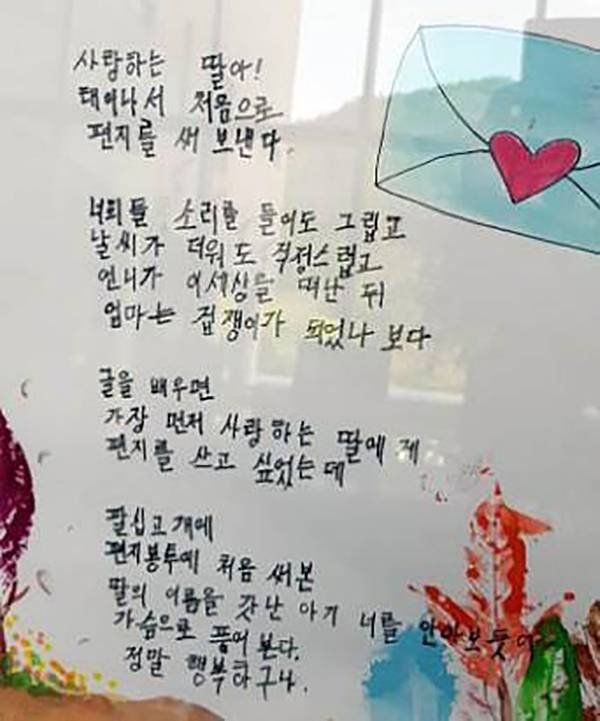 사랑하는 딸아!
태어나서 처음으로
편지를 써 보낸다.
너희들 소리를 들어도 그립고
날씨가 더워도 걱정스럽고
언니가 이세상을 떠난 뒤
엄마는 겁쟁이가 되었나 보다
글을 배우면
가장 먼저 사랑하는 딸에게
편지를 쓰고 싶었는데
팔십고개에
편지봉투에 처음 써본
딸의 이름을 갓난 아기 너를 안아보듯이
가슴으로 품어 본다.
정말 행복하구나.